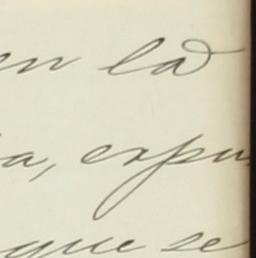 en la
a, expu
que se